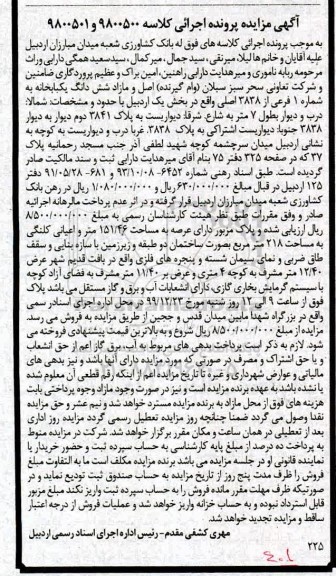 آگهی مزایده پرونده اجرائی کلاسه ۹۸۰۰۵۰۰ و ۹۸۰۰۵۰۱
به موجب پرونده اجرائی کلاسه های فوق له بانک کشاورزی شعبه میدان مبارزان اردبیل
علیه آقایان و خانم ها لیلا، میرتقی، سید جمال، میرکمال، سیدسعید همگی دارایی وراث
مرحومه ربابه ناموری و میرهدایت دارابی راهنین، امین براک و عظیم پروردگاری ضامنین
و شرکت تعاونی سحر سبز سبلان (وام گیرنده) اصل و مازاد شش دانگ یکبابخانه به
شماره ۱ فرعی از ۳۸۳۸ اصلی واقع در بخش یک اردبیل با حدود و مشخصات: شمالا:
درب و دیوار بطول ۷ متر به شارع. شرقا: دیواریست به پلاک ۳۸۴۱ دوم دیوار به دیوار
۳۸۳۸ جنوبا: دیواریست اشتراکی به پلاک ۳۸۳۸. غربا درب و دیواریست به کوچه به
نشانی اردبیل میدان سرچشمه کوچه شهید لطفی آذر جنب مسجد رحمانیه پلاک
۳۷ که در صفحه ۳۲۵ دفتر ۷۵ بنام آقای میرهدایت دارابی ثبت و سند مالکیت صادر
گردیده است. طبق اسناد رهنی شماره ۶۴۵۲- ۹۳/۱۰/۰۸ و ۶۸۱- ۹۱/۰۵/۲۸ دفتر
۱۲۵ اردبیل در قبال مبالغ ۶۳۰/۰۰۰/۰۰۰ ریال و ۱/۰۸۰/۰۰۰/۰۰۰ ریال در رهن بانک
کشاورزی شعبه میدان مبارزان اردبیل قرار گرفته و در اثر عدم پرداخت مالرهانه اجرائیه
صادر و وفق مقررات طبق نظر هیئت کارشناسان رسمی به مبلغ ۸/۵۰۰/۰۰۰/۰۰۰
ریال ارزیابی شده و پلاک مزبور دارای عرصه به مساحت ۱۵۱/۴۶ متر و اعیانی کلنگی
به مساحت ۲۱۸ متر مربع بصورت ساختمان دو طبقه و زیرزمین با سازه بنایی و سقف
طاق ضربی و نمای سیمان شسته و پنجره های فلزی واقع در بافت قدیم شهر عرض
۱۲/۴۰ متر مشرف به کوچه ۴ متری و عرض بر ۱۱/۴۰ متر مشرف به فضای آزاد کوچه
با سیستم گرمایش بخاری گازی، دارای انشعابات آب و برق و گاز مستقل می باشد پلاک
فوق از ساعت ۹ الی ۱۲ روز شنبه مورخ ۹۹/۱۲/۲۳ در محل اداره اجرای اسنادر سمی
واقع در بزرگراه شهدا مابین میدان قدس و ججین از طریق مزایده به فروش می رسد.
مزایده از مبلغ ۸/۵۰۰/۰۰۰/۰۰۰ ریال شروع و به بالاترین قیمت پیشنهادی فروخته می
شود. لازم به ذکر است پرداخت بدهی های مربوط به آب، برق، گاز اعم از حق انشعاب
و یا حق اشتراک و مصرف در صورتی که مورد مزایده دارای آنها باشد و نیز بدهی های
مالیاتی و عوارض شهرداری و غیره تا تاریخ مزایده اعم از اینکه رقم قطعی آن معلوم شده
یا نشده باشد به عهده برنده مزایده است و نیز در صورت وجود مازاد وجوه پرداختی بابت
هزینه های فوق از محل مازاد به برنده مزایده مسترد خواهد شد و نیم عشر و حق مزایده
نقدا وصول می گردد ضمنا چنانچه روز مزایده تعطیل رسمی گردد مزایده روز اداری
بعد از تعطیلی در همان ساعت و مکان مقرر برگزار خواهد شد. شرکت در مزایده منوط
به پرداخت ده درصد از مبلغ پایه کارشناسی به حساب سپرده ثبت و حضور خریدار یا
نماینده قانونی او در جلسه مزایده می باشد برنده مزایده مکلف است ما به التفاوت مبلغ
فروش را ظرف مدت پنج روز از تاریخ مزایده به حساب صندوق ثبت تودیع نماید و در
صورتیکه ظرف مهلت مقرر مانده فروش را به حساب سپرده ثبت واریز نکند مبلغ مزبور
قابل استرداد نبوده و به حساب خزانه واریز خواهد شد و عملیات فروش از درجه اعتبار
ساقط و مزایده تجدید خواهد شد.
مهری کشفی مقدم- رئیس اداره اجرای اسناد رسمی اردبیل
۲۲۵